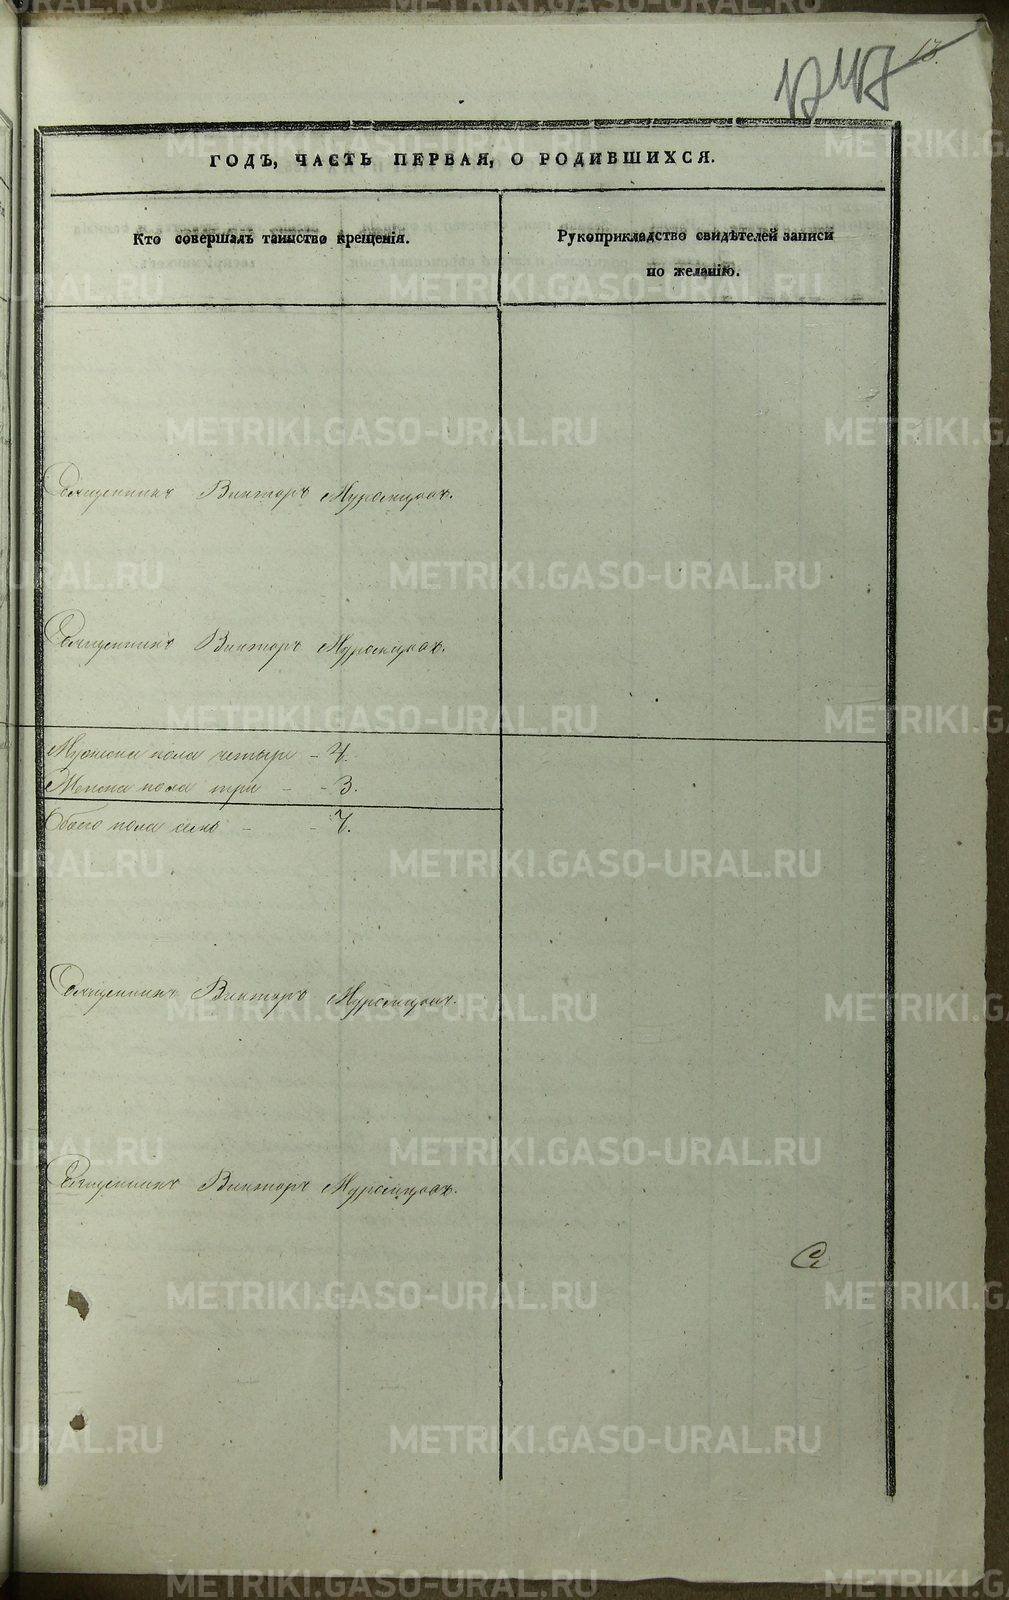 13.
ГОДЪ, ЧАСТЬ ПЕРВАЯ, О РОДИВШИХСЯ.
Кто совершалъ таинство крещенія.
Рукоприкладство свидѣтелей записи
по желанію.
Священникъ Викторъ Муромцовъ.
Священникъ Викторъ Муромцовъ.
Мужеска пола четыре - 4.
Женска пола три - - 3.
Обоего пола семь - - 7.
Священникъ Викторъ Муромцовъ.
Священникъ Викторъ Муромцовъ.
METRIKI.GASO-URAL.RU